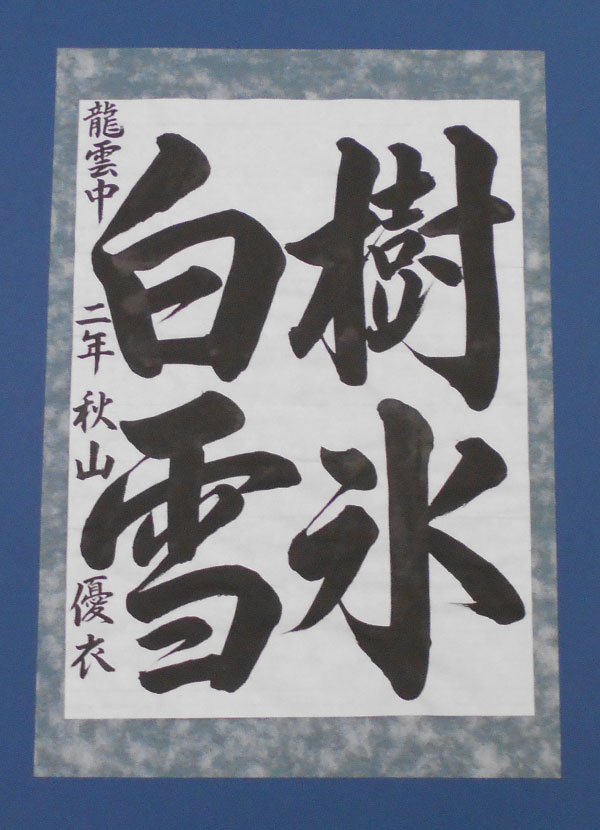 樹氷
白雪
龍雲中 二年 秋山 優衣